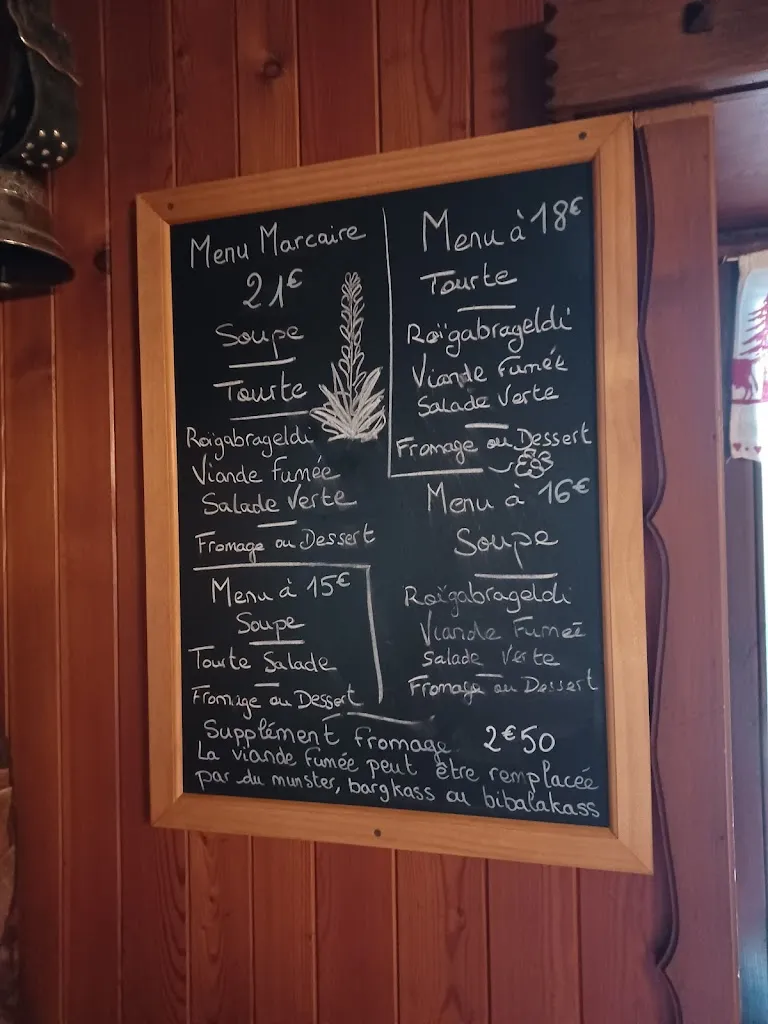 Menu Marcaire
21€
Soupe
Tourte
Roïgabrageldi
Viande fumée
Salade Verte
Fromage ou Dessert
Menu à 15€
Soupe
Tourte Salade
Fromage ou Dessert
Menu à 18€
Tourte
Roïgabrageldi
Viande fumée
Salade Verte
Fromage ou Dessert
Menu à 16€
Soupe
Roïgabrageldi
Viande Fumée
Salade Verte
Fromage ou Dessert
Supplément fromage 2€50
La viande fumée peut être remplacée
par du munster, bargkass ou bibalakass